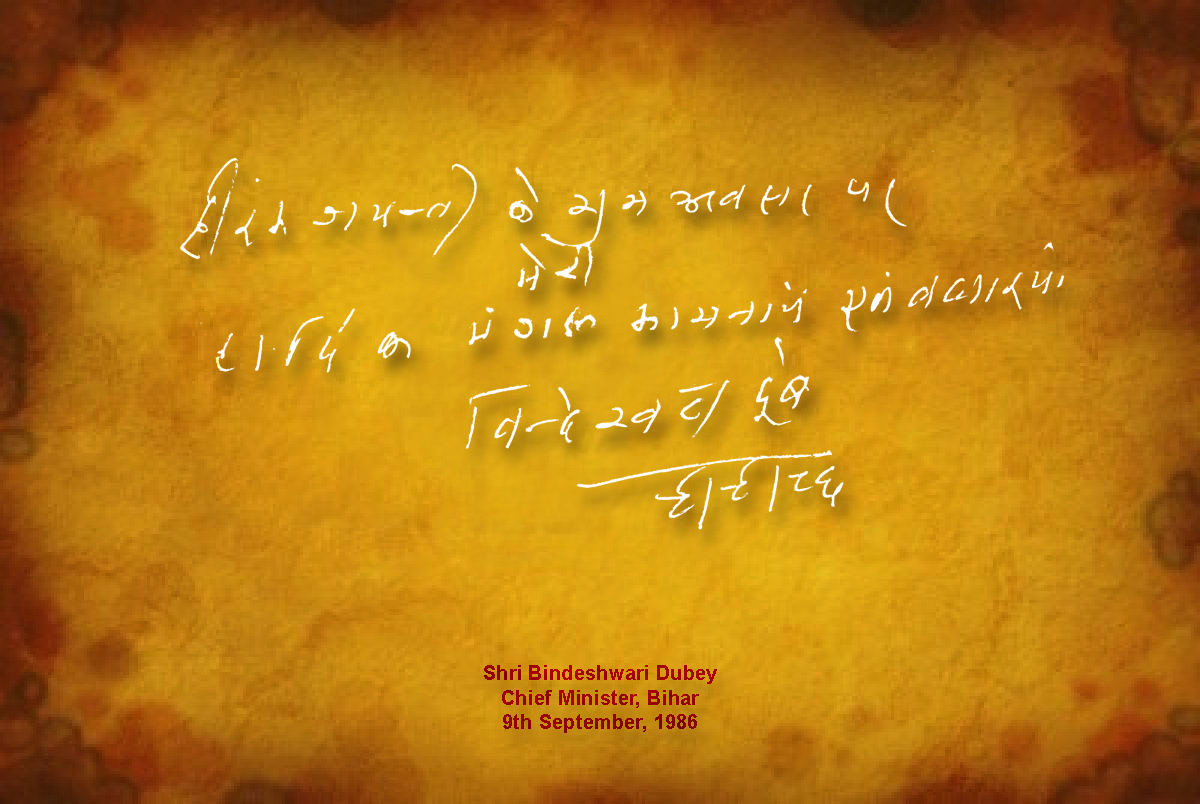 हीरक जयन्ती के शुभ अवसर पर
मेरी
हार्दिक मंगल कामनायें एवं
विन्देश्वरी दूबे
Shri Bindeshwari Dubey
Chief Minister, Bihar
9th September, 1986